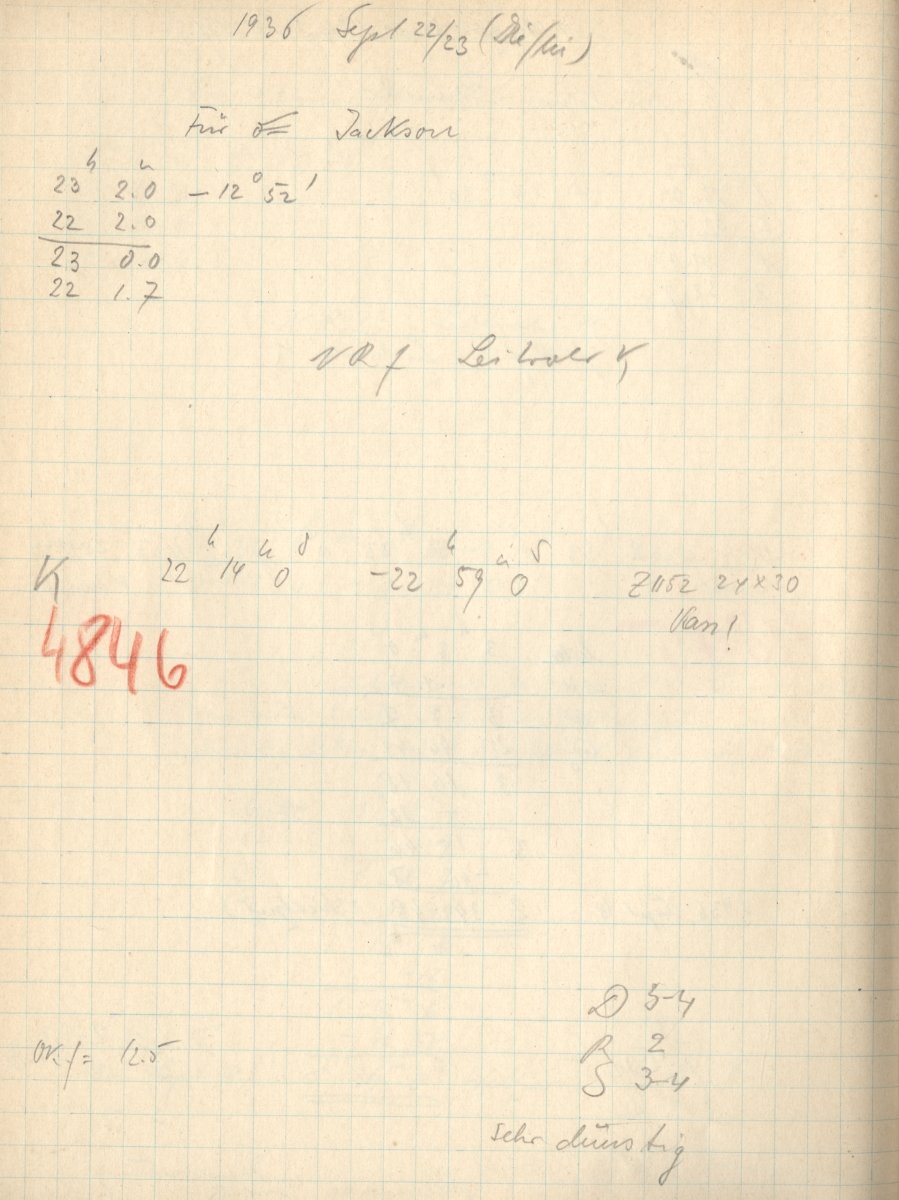 1936 Sept 22/23 (Die/Mi)
Für Jackson
23h 2.0m -12° 52'
22 2.0
23 0.0
22 1.7
VR f
K 22h 14m 0s -22h 59m 0s Z1152 24x30
4846
D 3-4
f = 12.5
R 2
S 3-4
sehr dunstig